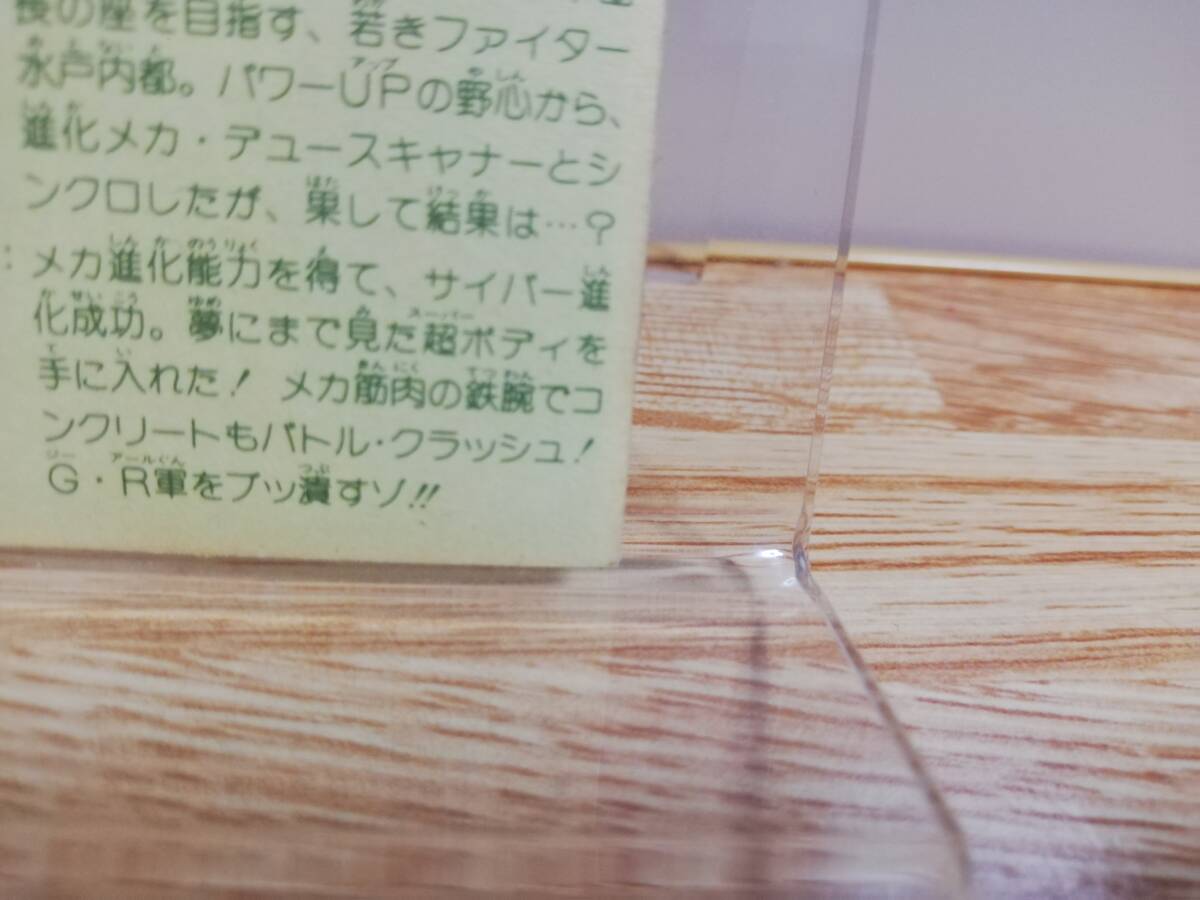 後の座を目指す、若きファイター
水戸内都。パワーUPの野心から、
進化メカ・デュースキャナーとシ
ンクロしたが、果して結果は…?
:メカ進化能力を得て、サイバー進
化成功。夢にまで見た超ボディを
手に入れた! メカ筋肉の鉄腕でコ
ンクリートもバトル・クラッシュ!
G・R軍をブッ潰すゾ!!